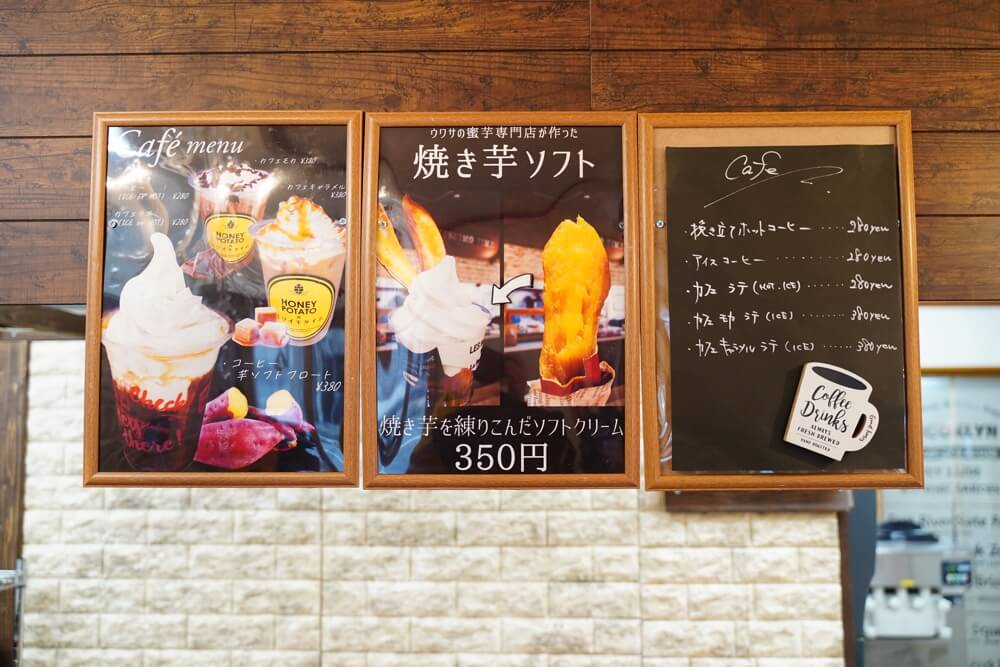 Café menu
・カフェモカ ¥380
・コーヒー
(ICE or HOT) ¥280
・カフェラテ
(ICE or HOT) ¥280
・カフェキャラメル
¥380
HONEY
POTATO
HONEY
POTATO
・コーヒー
芋ソフトフロート
¥380
ウワサの蜜芋専門店が作った
焼き芋ソフト
焼き芋を練りこんだソフトクリーム
350円
Cafe
・挽き立てホットコーヒー ‥‥ 280yen
・アイスコーヒー ‥‥‥‥ 280yen
・カフェ ラテ (HOT.ICE) ‥‥‥ 280yen
・カフェ モカ ラテ (ICE) ‥‥‥ 380yen
・カフェ キャラメル ラテ (ICE) ‥‥‥ 380yen
Coffee
Drinks
ALWAYS
FRESH BREWED